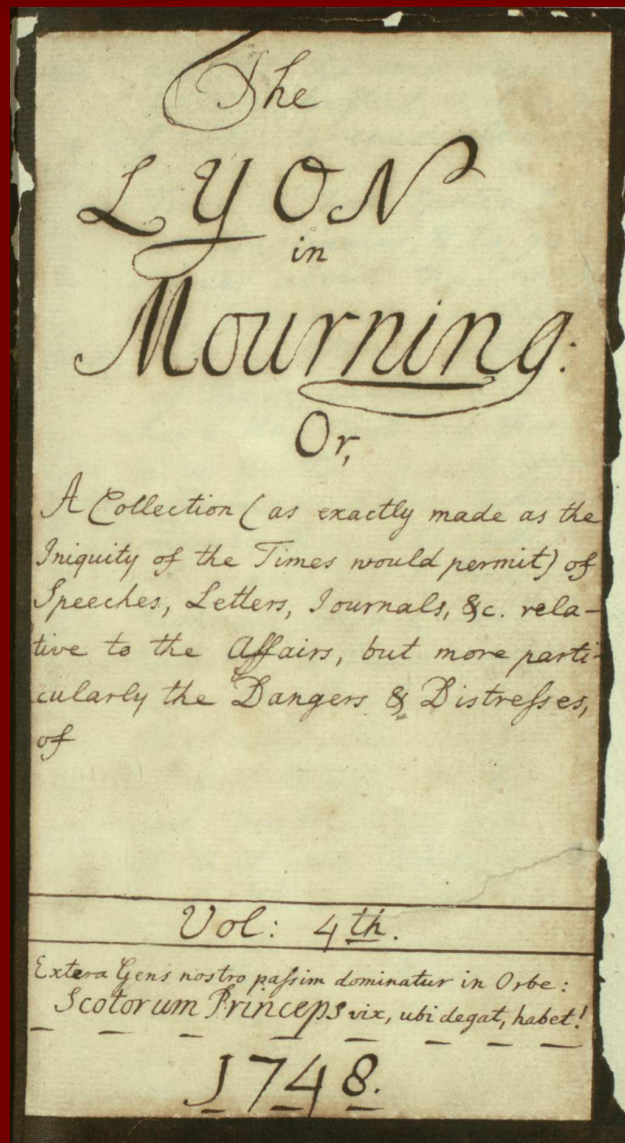 The
LYON
in
Mourning:
Or,
A Collection (as exactly made as the
Iniquity of the Times would permit) of
Speeches, Letters, Journals, &c. rela-
tive to the Affairs, but more parti-
cularly the Dangers & Distreſses,
of
Vol: 4th.
Extera Gens nostro paſsim dominatur in Orbe:
Scotorum Princeps vix, ubi degat, habet!
1748.